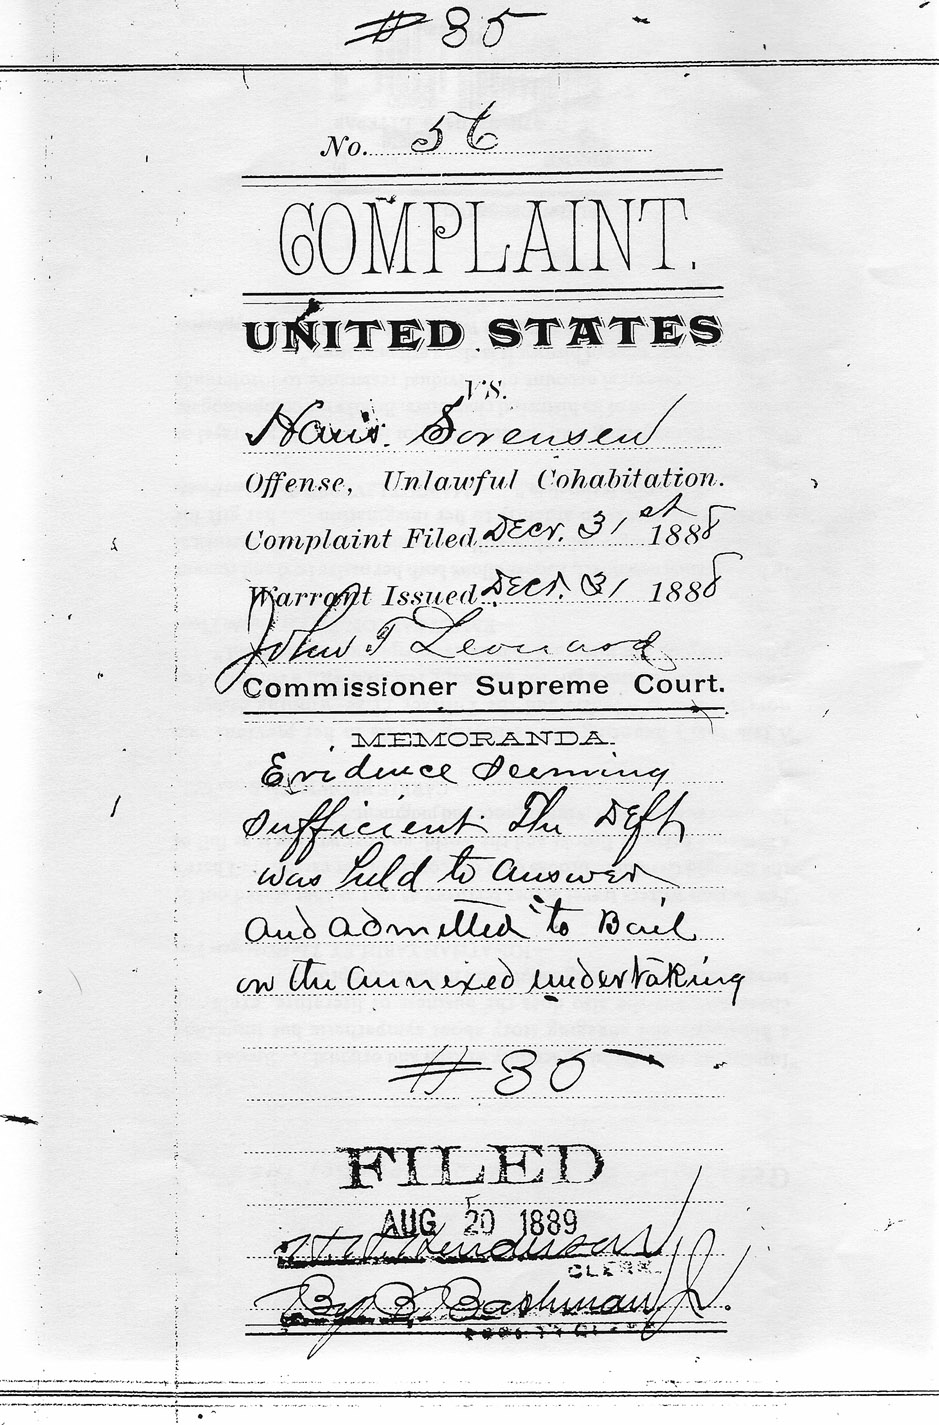 # 35
No. 56
COMPLAINT.
UNITED STATES
VS.
Hans Sorensen
Offense, Unlawful Cohabitation.
Complaint Filed Decr. 31st 1888
Warrant Issued Decr. 31 1888
John T Leonard
Commissioner Supreme Court.
MEMORANDA.
Evidence seeming
sufficient The Deft
was held to answer
and admitted to Bail
on the annexed undertaking
# 35
FILED
AUG 20 1889
Henderson
CLERK
By B Bachman Jr.
DEPUTY CLERK